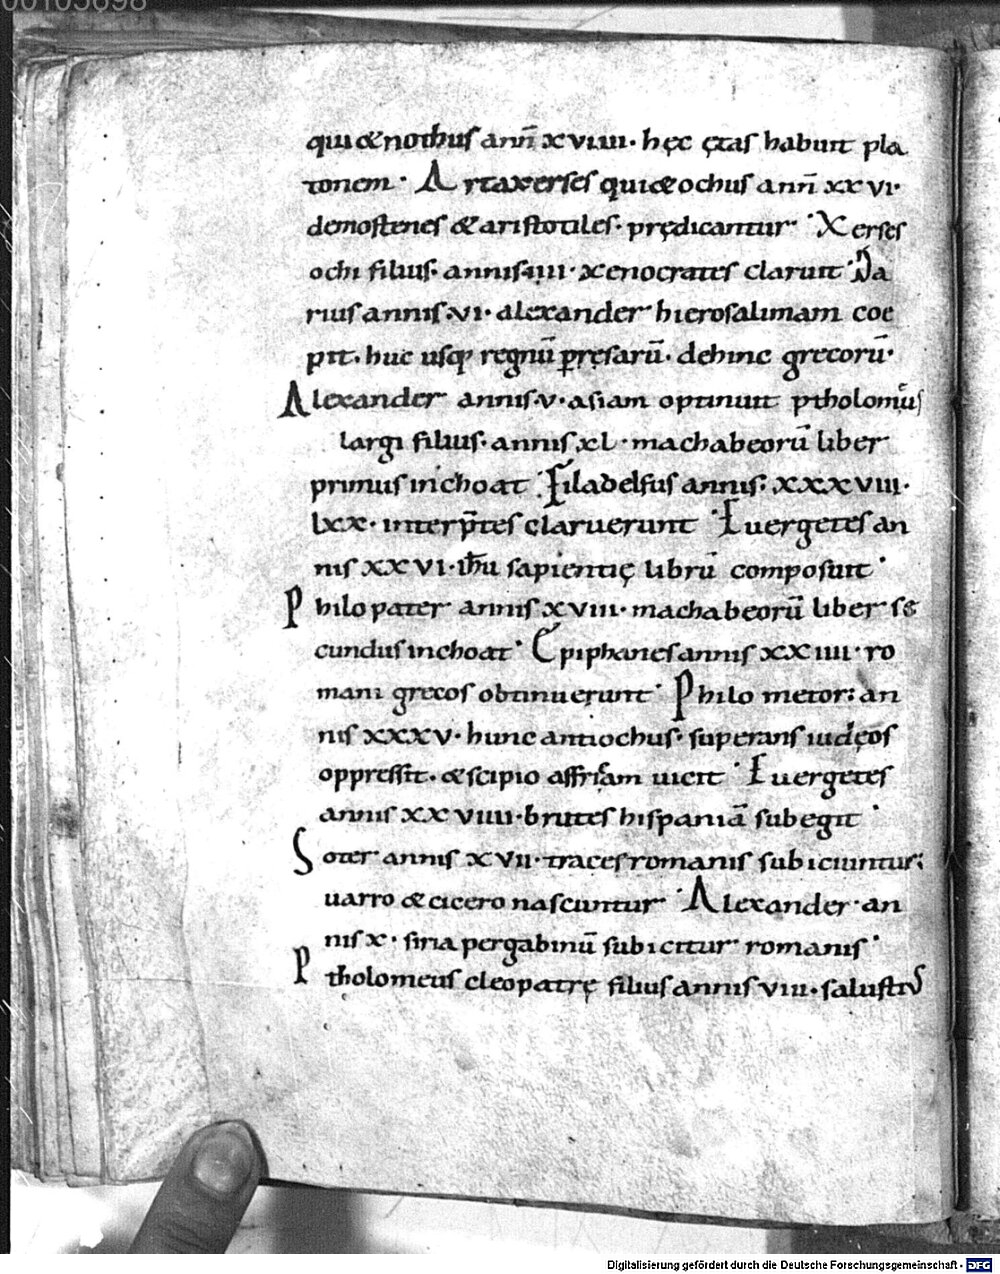 00105698
qui & nothus ann̄ xviiii. hęc ętas habuit pla
tonem. Artaxerses qui & ochus ann̄ xxvi.
demostenes & aristotiles. prędicantur. Xerses
ochi filius. annis iiii. xenocrates claruit. Da
rius annis. vi. alexander hierosalimam coe
pit. huc usq; regnū p̄ręsarū. dehinc grecorū.
Alexander annis. v. asiam optinuit ptholomeus
largi filius. annis xl. machabeorū liber
primus inchoat. Filadelfus annis: xxxviii.
lxx. interp̄tes claruerunt. Euergetes an
nis xxvi. ih̄u sapientię librū composuit.
Philopater annis xviii. machabeorū liber se
cundus inchoat. Epiphanes annis xxiiii. ro
mani grecos obtinuerunt. Philo metor: an
nis xxxv. hunc antiochus. superans iudęos
oppressit. & scipio affricam uicit. Euergetes
annis xxviiii. brutes hispaniā subegit.
Soter annis xvii. traces romanis subiciuntur;
uarro & cicero nascuntur. Alexander. an
nis x. siria pergabinū subicitur romanis.
Ptholomeus cleopatrę filius annis viii. salustius
Digitalisierung gefördert durch die Deutsche Forschungsgemeinschaft - DFG